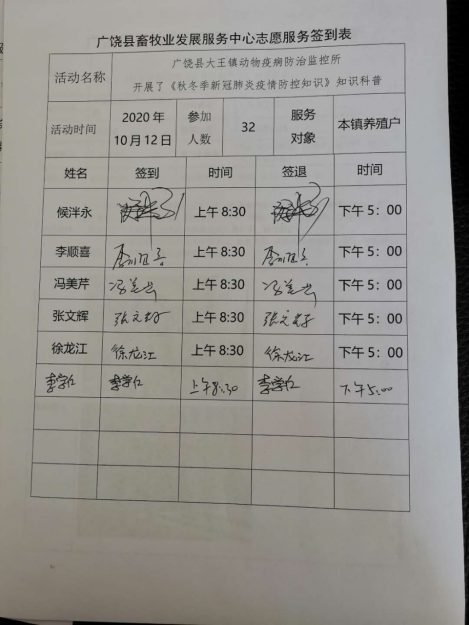 广饶县畜牧业发展服务中心志愿服务签到表
活动名称 广饶县大王镇动物疫病防治监控所
开展了《秋冬季新冠肺炎疫情防控知识》知识科普
活动时间 2020年 10月12日 参加人数 32 服务对象 本镇养殖户
姓名 签到 时间 签退 时间
候泮永 上午8:30 下午5：00
李顺喜 上午8:30 下午5：00
冯美芹 冯美芹 上午8:30 冯美芹 下午5：00
张文辉 张文辉 上午8:30 张文辉 下午5：00
徐龙江 徐龙江 上午8:30 徐龙江 下午5：00
李学仁 李学仁 上午8:30 李学仁 下午5:00